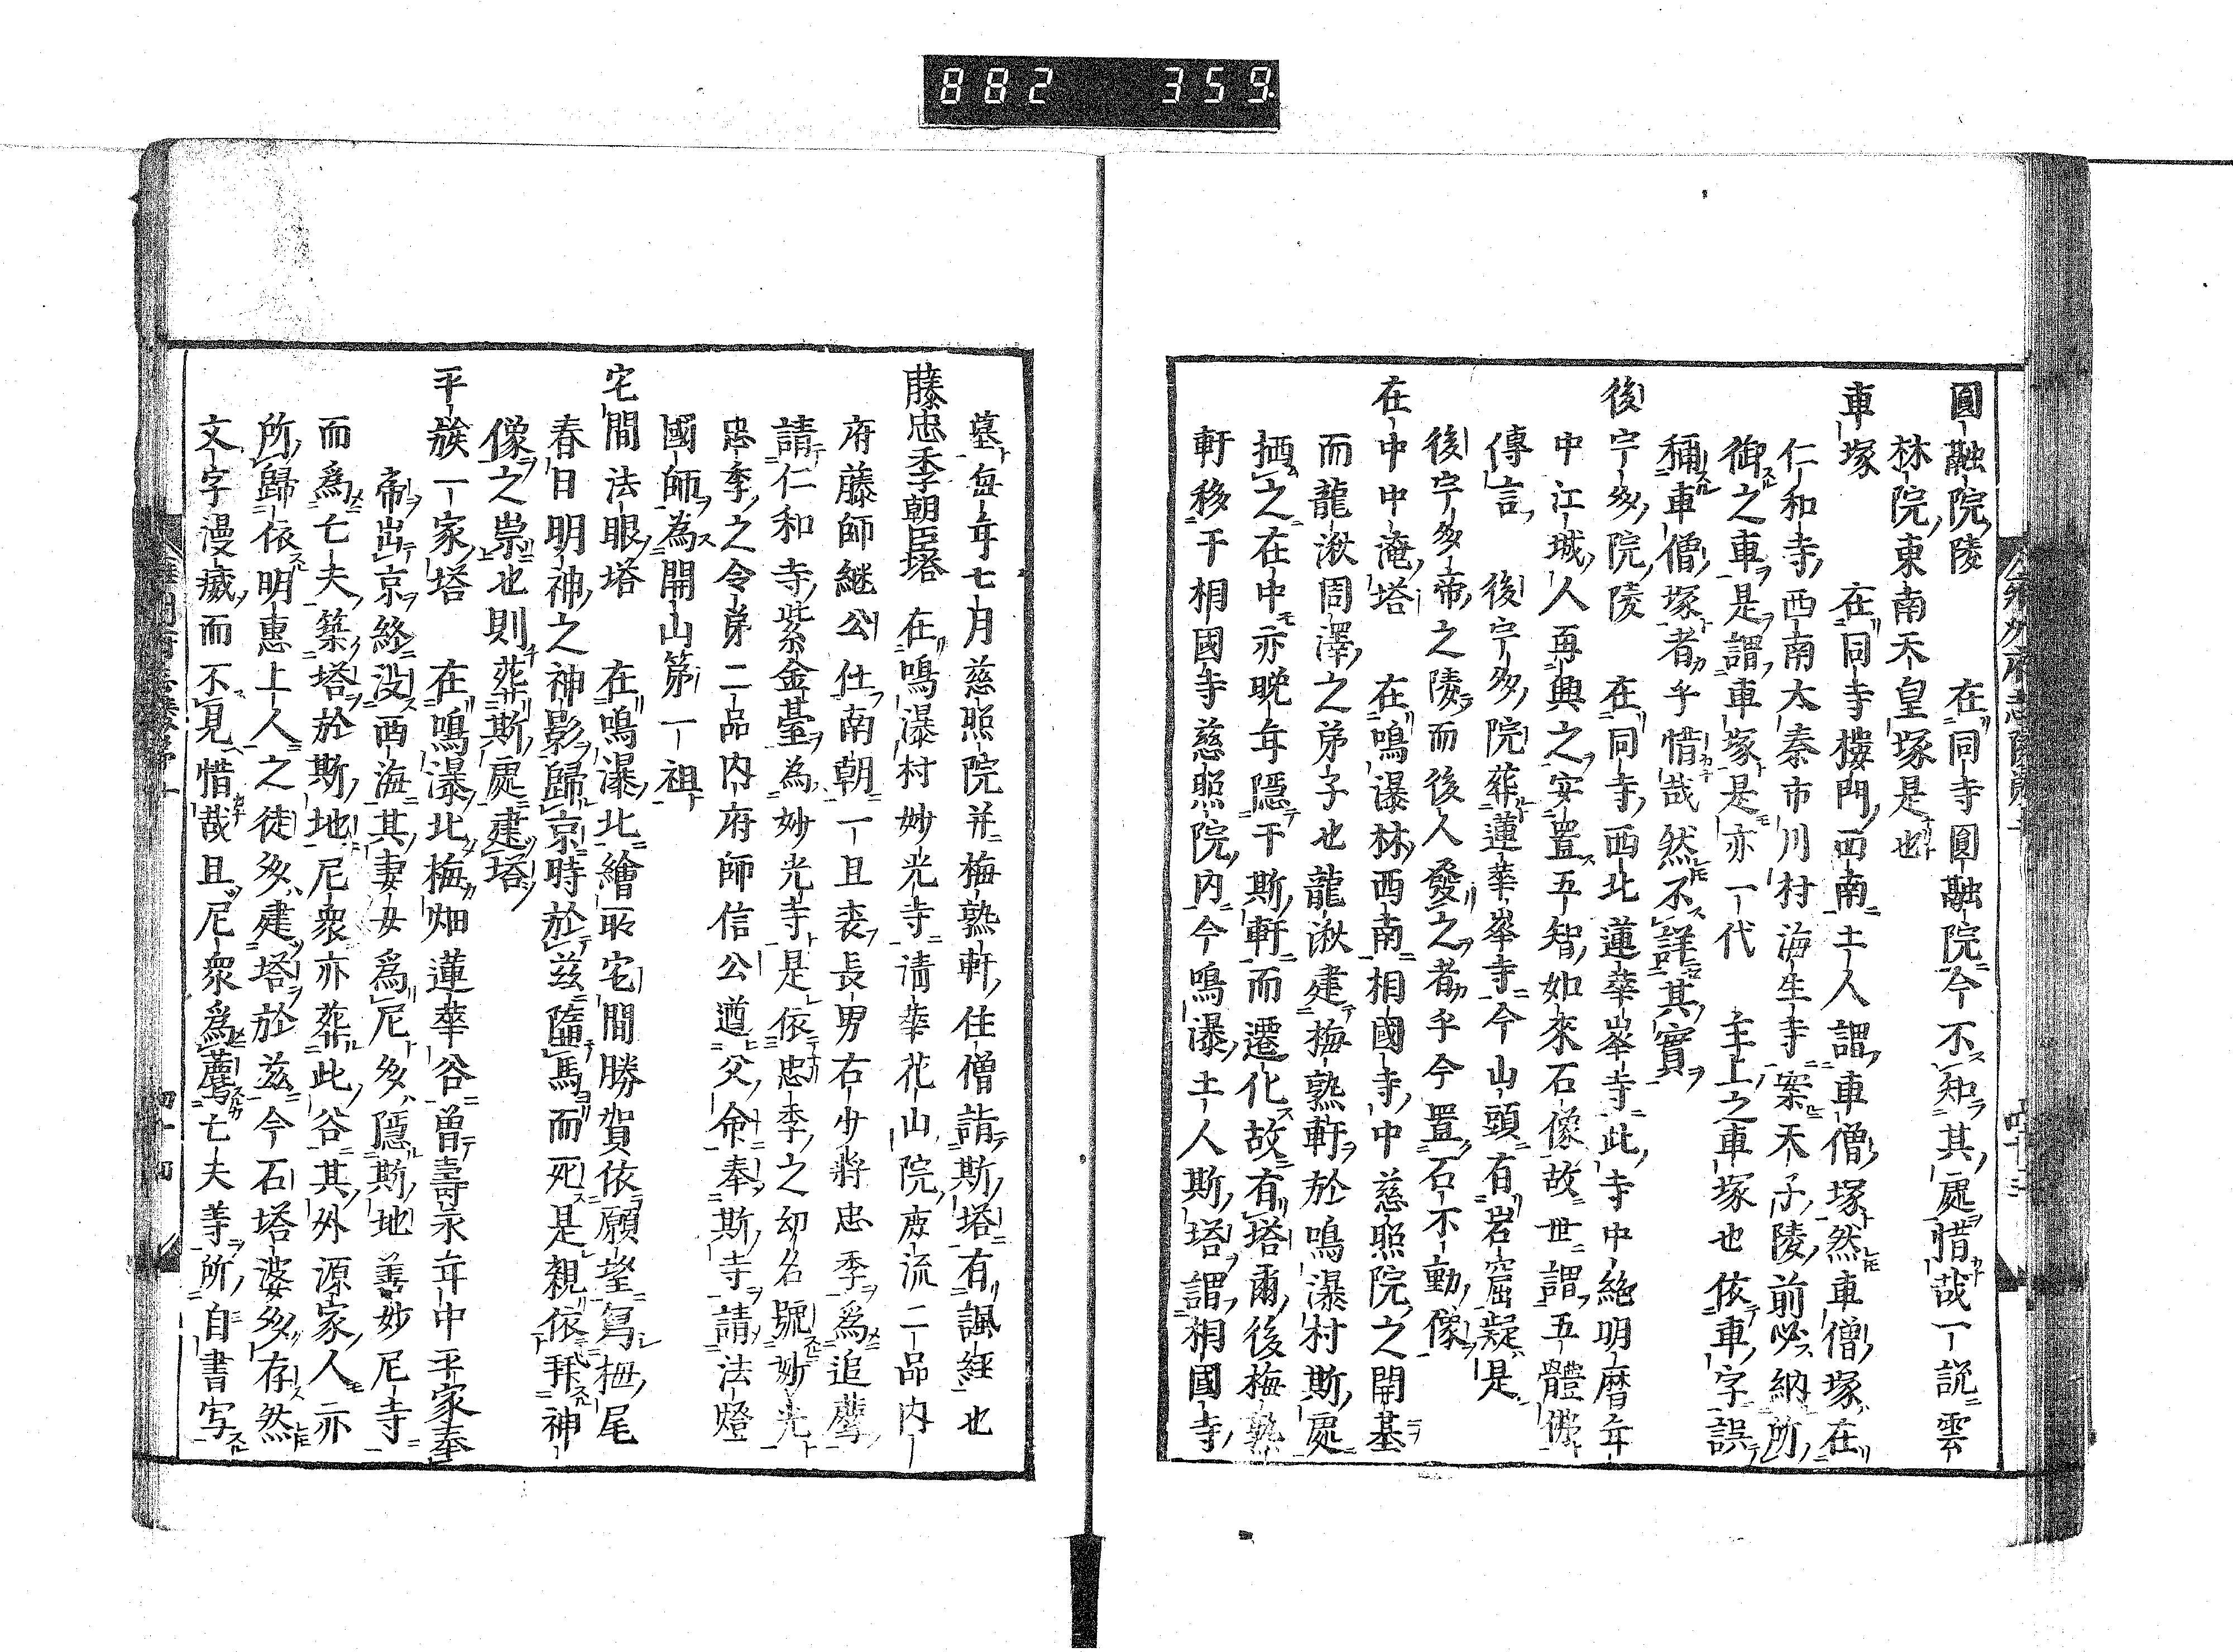 882 359
圓融院陵 在同寺圓融院今不知其處惜哉一説雲
林院東南天皇塚是也
車塚 在同寺樓門西南土人謂車僧塚然車僧塚在
仁和寺西南太秦市川村海生寺案天子陵前必納所
御之車是謂車塚是亦一代 主上之車塚也依車字誤
稱車僧塚者乎惜哉然不詳其實
後宇多院陵 在同寺西北蓮華峯寺此寺中絶明暦年
中江城人再興之安置五智如來石像故世謂五體佛
傳言 後宇多院葬蓮華峯寺今山頭有岩窟疑是
後宇多帝之陵而後人發之者乎今置石不動像
在中中淹塔 在鳴瀑林西南相國寺中慈照院之開基
而龍湫周澤之弟子也龍湫建梅熟軒於鳴瀑村斯處
栖之在中亦晩年隱于斯軒而遷化故有塔爾後梅熟
軒移于相國寺慈照院内今鳴瀑土人斯塔謂相國寺
墓毎年七月慈照院并梅熟軒住僧詣斯塔有諷經也
藤忠季朝臣塔 在鳴瀑村妙光寺清華花山院庶流二品内
府藤師継公仕南朝一旦喪長男右少將忠季爲追薦
請仁和寺紫金臺為妙光寺是依忠季之幼名號妙光
忠季之令弟二品内府師信公遵父命奉斯寺請法燈
國師為開山第一祖
宅間法眼塔 在鳴瀑北繪取宅間勝賀依願望寫栂尾
春日明神之神影歸京時於茲隨馬而死是親依拜神
像之祟也則葬斯處建塔
平族一家塔 在鳴瀑北梅畑蓮華谷曽壽永年中平家奉
帝出京終没西海其妻女爲尼多隱斯地善妙尼寺
而爲亡夫築塔於斯地尼衆亦葬此谷其外源家人亦
所歸依明惠上人之徒多建塔於茲今石塔婆多存然
文字漫滅而不見惜哉且尼衆爲薦亡夫等所自書写